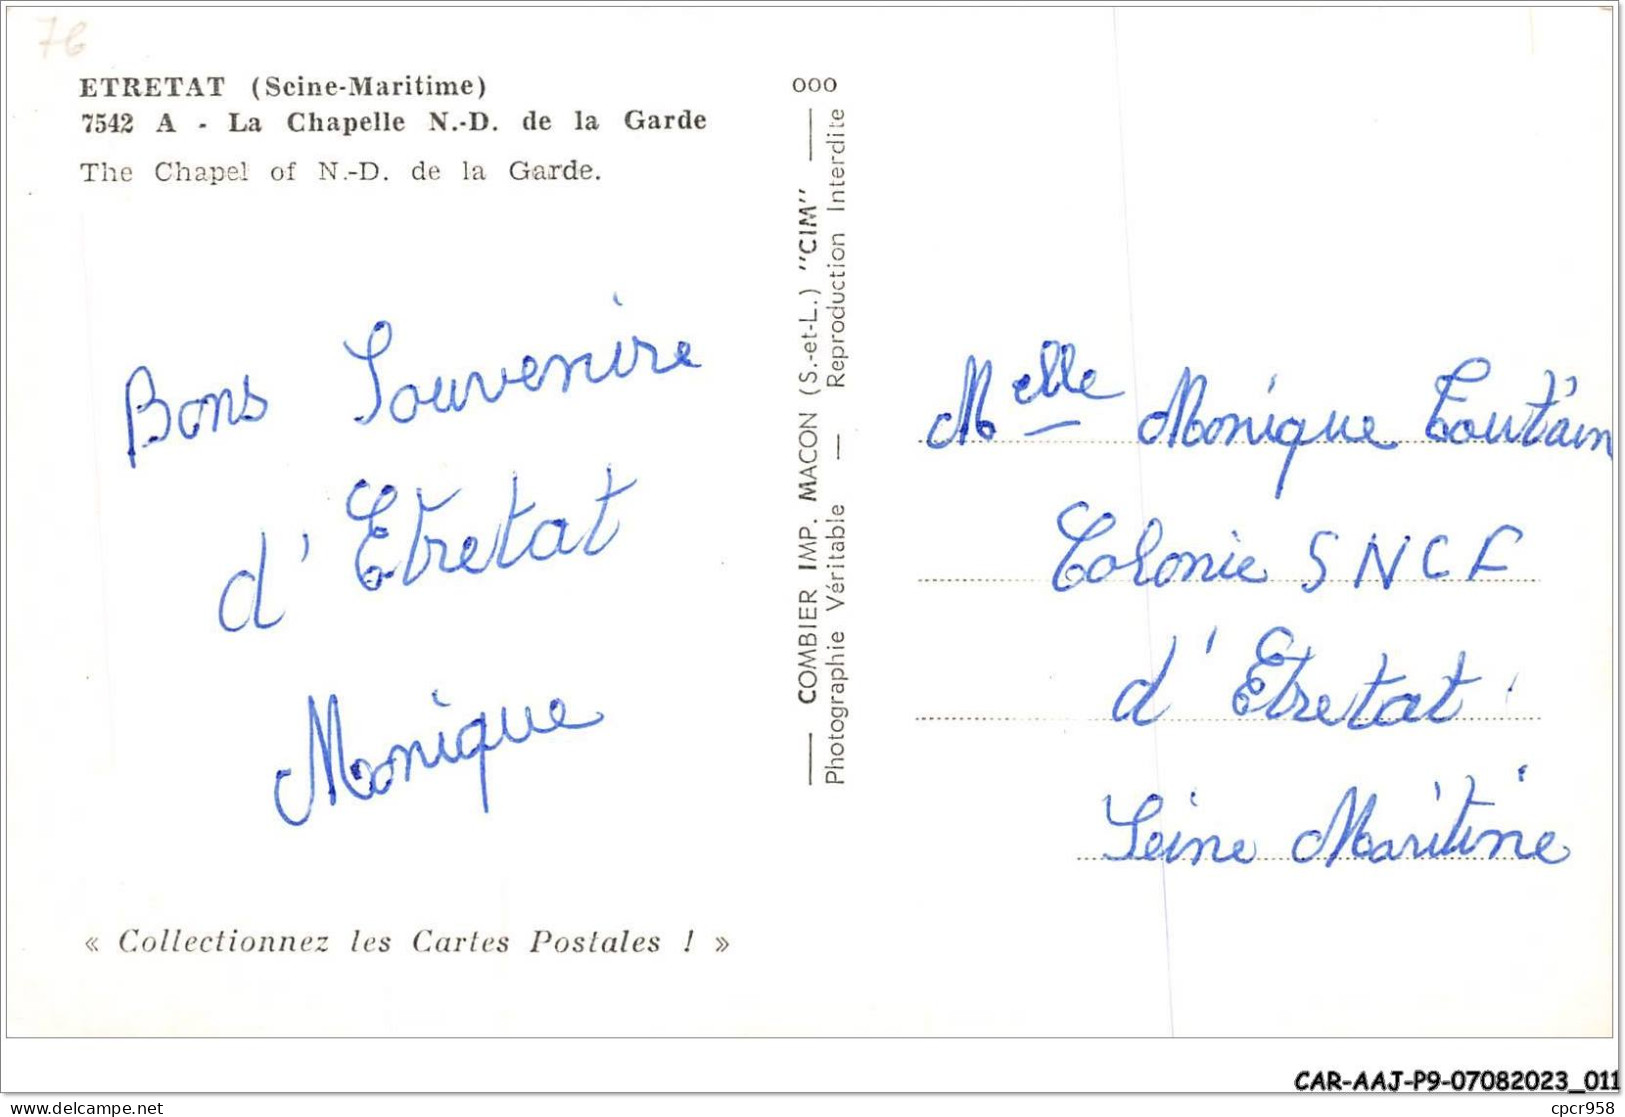 76
ETRETAT (Seine-Maritime)
7542 A - La Chapelle N.-D. de la Garde
The Chapel of N.-D. de la Garde.
Bons Souvenire
d'Etretat
Monique
« Collectionnez les Cartes Postales ! »
000
COMBIER IMP. MACON (S.-et-L.) "CIM"
Photographie Véritable — Reproduction Interdite
Melle Monique Toutain
Colonie SNCF
d'Etretat
Seine Maritine
CAR-AAJ-P9-07082023_011
delcampe.net
cpcr958